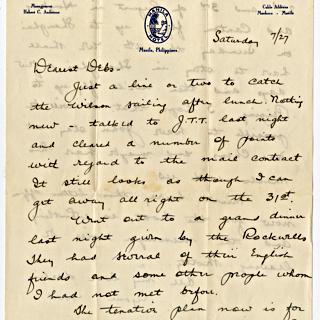 Management
Hubert C. Anderson
MANILA
HOTEL
Manila, Philippines
Cable Address
Manhotel - Manila
Saturday 7/27
Dearest Debs-
Just a line or two to catch
the Wilson sailing after lunch. Nothing
new talked to J.T.T. last night
and cleared a number of points
with regard to the mail contract
It still looks as though I can
get away all right on the 31st.
Went out to a grand dinner
last night given by the Rockwells
They had several of their English
friends and some other people whom
I had not met before.
The tenative plan now is for